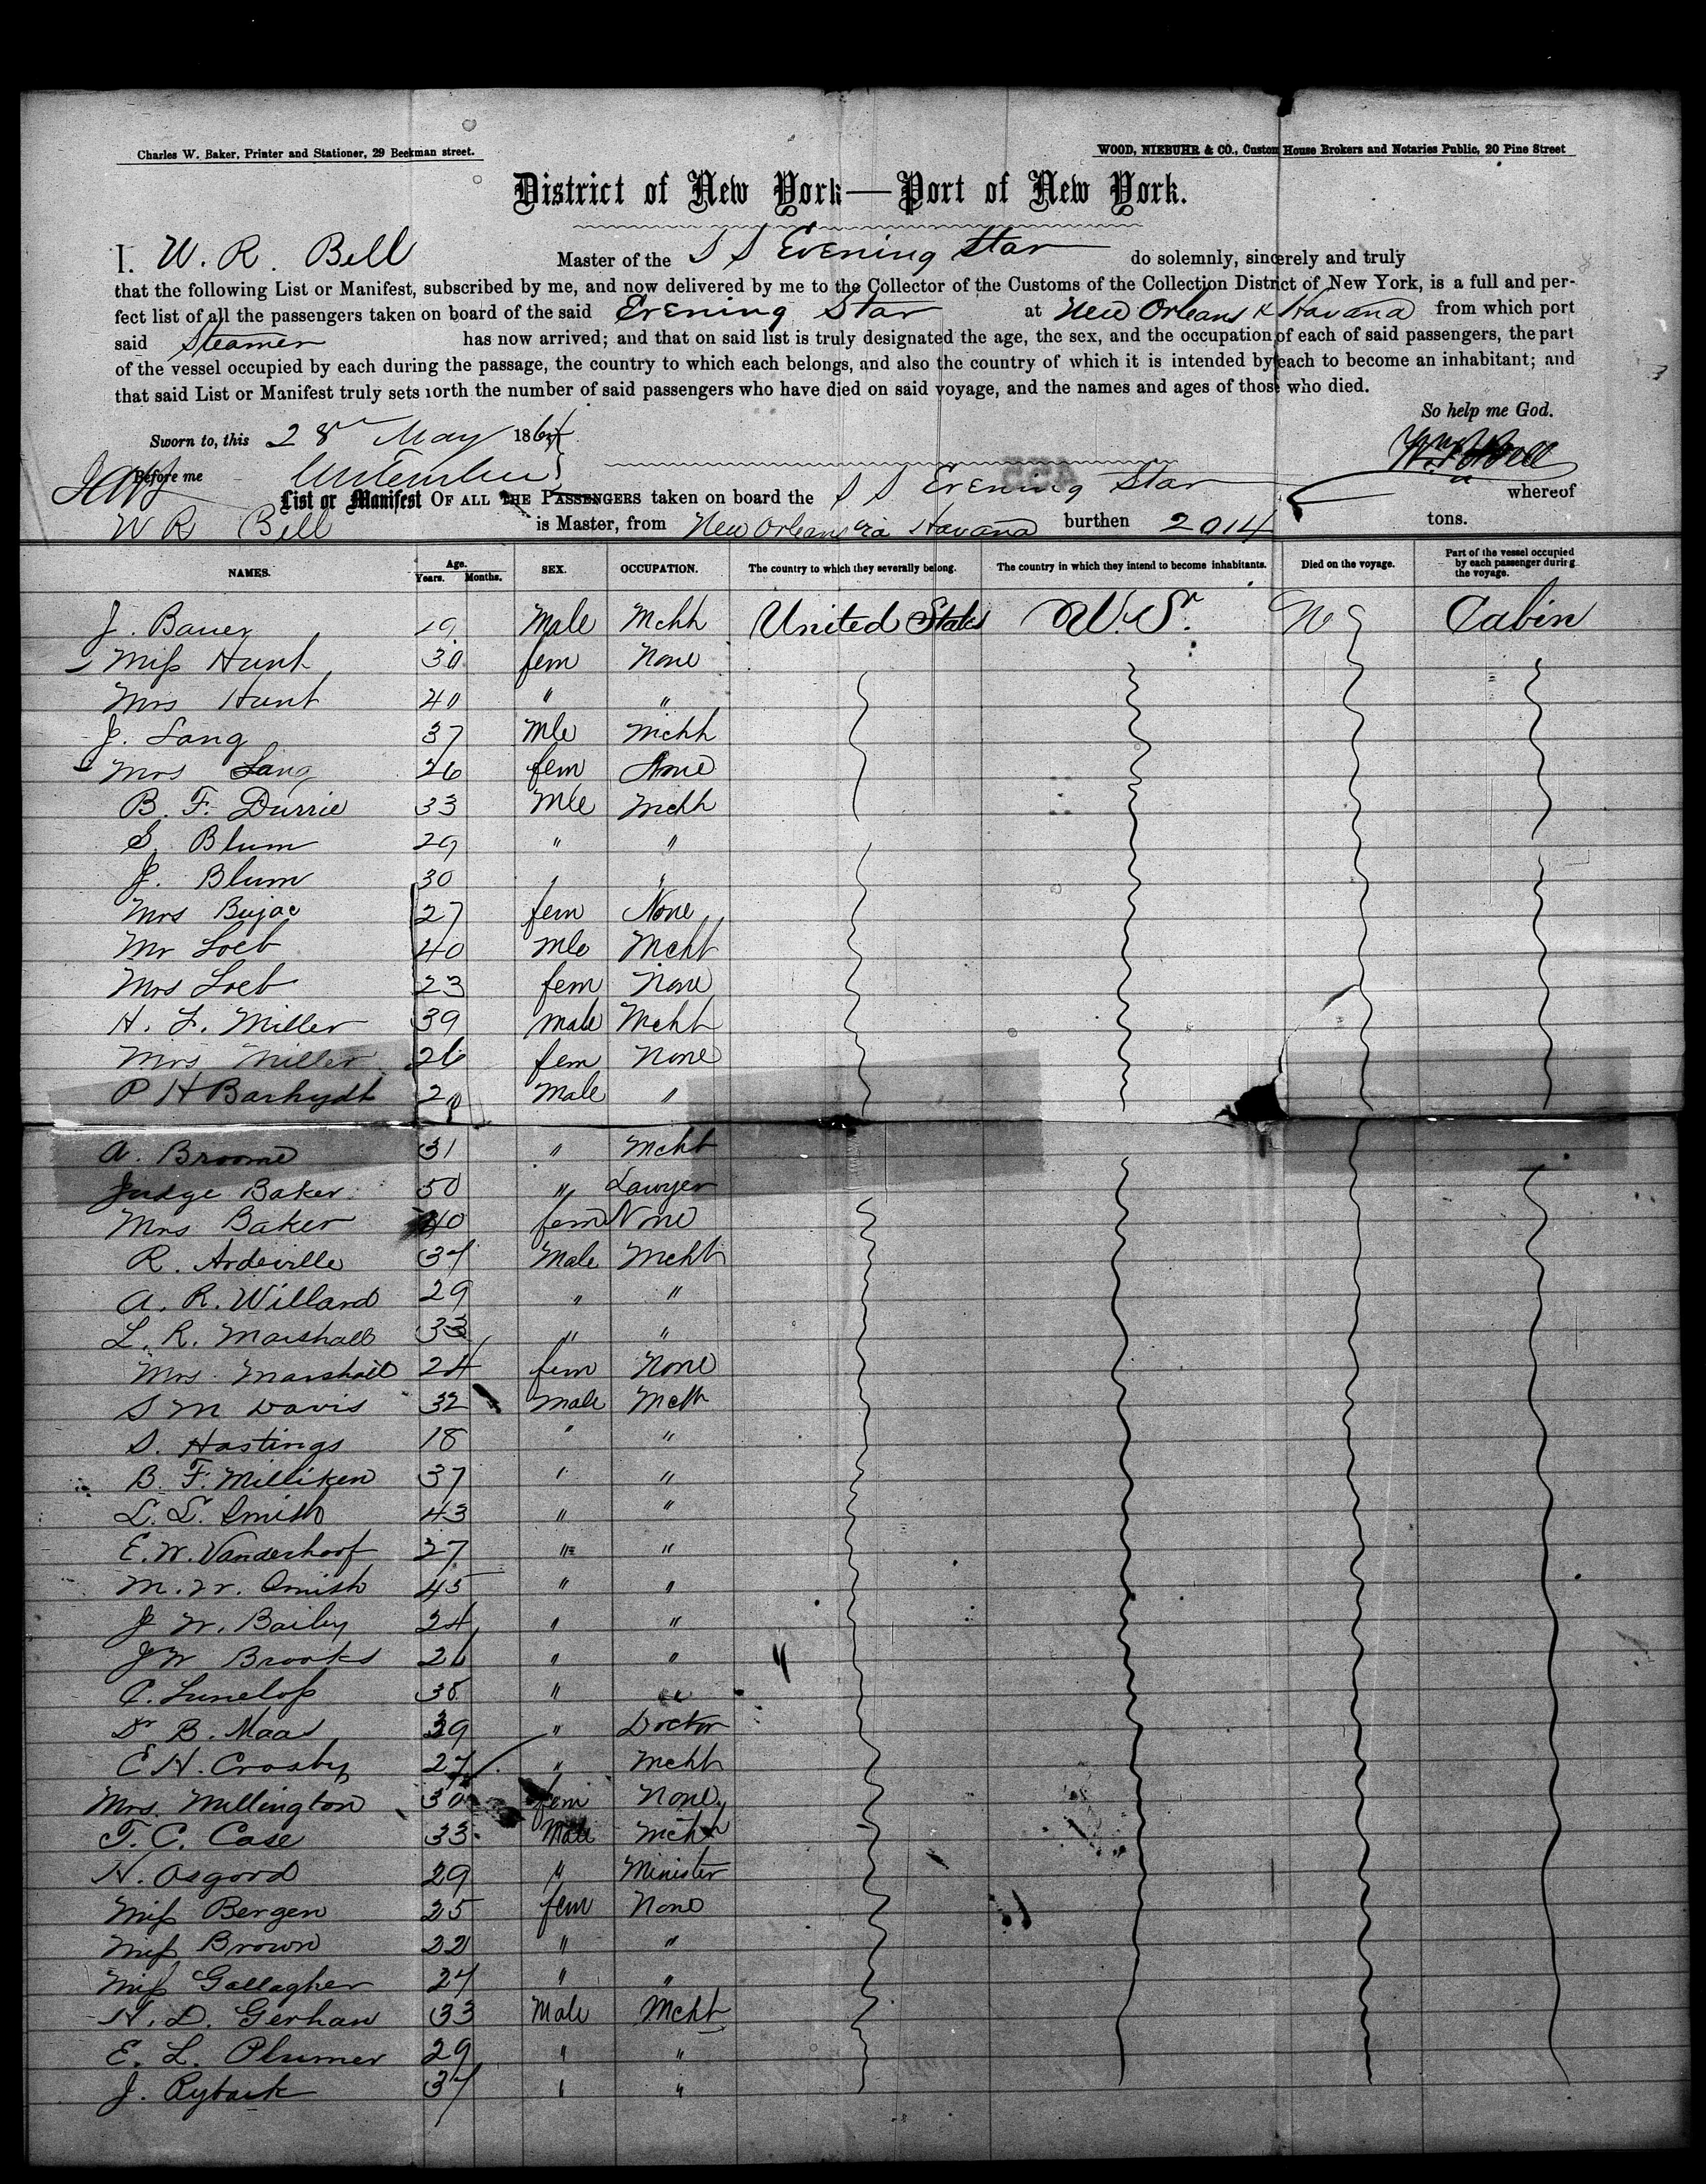 Charles W. Baker, Printer and Stationer, 29 Beekman street.
WOOD, NIEBUHR & CO., Custom House Brokers and Notaries Public, 20 Pine Street
District of New York—Port of New York.
I. W. R. Bell Master of the S S Evening Star do solemnly, sincerely and truly
that the following List or Manifest, subscribed by me, and now delivered by me to the Collector of the Customs of the Collection District of New York, is a full and per-
fect list of all the passengers taken on board of the said Evening Star at New Orleans & Havana from which port
said Steamer has now arrived; and that on said list is truly designated the age, the sex, and the occupation of each of said passengers, the part
of the vessel occupied by each during the passage, the country to which each belongs, and also the country of which it is intended by each to become an inhabitant; and
that said List or Manifest truly sets forth the number of said passengers who have died on said voyage, and the names and ages of those who died.
So help me God.
Sworn to, this 28 May 1864
Before me
List or Manifest OF ALL THE PASSENGERS taken on board the S S Evening Star whereof
W R Bell is Master, from New Orleans via Havana burthen 2014 tons.
NAMES. Age. Years. Months. SEX. OCCUPATION. The country to which they severally belong. The country in which they intend to become inhabitants. Died on the voyage. Part of the vessel occupied by each passenger during the voyage.
J. Bauer 19 Male Mcht United States U.S. No Cabin
Miss Hunt 30 fem None
Mrs Hunt 40 " "
J. Lang 37 Mle Mcht
Mrs Lang 26 fem None
B. F. Durrie 33 Mle Mcht
S. Blum 29 " "
J. Blum 30 " "
Mrs Bujac 27 fem None
Mr Loeb 40 Mle Mcht
Mrs Loeb 23 fem None
H. L. Miller 39 male Mcht
Mrs Miller 26 fem None
P H Barhydt 20 Male "
A. Broome 31 " Mcht
Judge Baker 50 " Lawyer
Mrs Baker 40 fem None
R. Ardeville 34 Male Mcht
A. R. Willard 29 " "
L. R. Marshall 33 " "
Mrs Marshall 24 fem None
S M Davis 32 male Mcht
S. Hastings 18 " "
B. F. Milliken 37 " "
L. L. Smith 43 " "
E. W. Vanderhoof 27 " "
M. W. Smith 45 " "
J W. Bailey 24 " "
J W Brooks 26 " "
C. 38 " "
Dr B. Maas 39 " Doctor
E H. Crosby 27 " Mcht
Mrs. Millington 30 fem None
T. C. Case 33 Male Mcht
H. Osgood 29 " Minister
Miss Bergen 25 fem None
Miss Brown 22 " "
Miss Gallagher 24 " "
H. D. Gerhan 33 Male Mcht
E. L. Plumer 29 " "
J. Ryback 34 " "